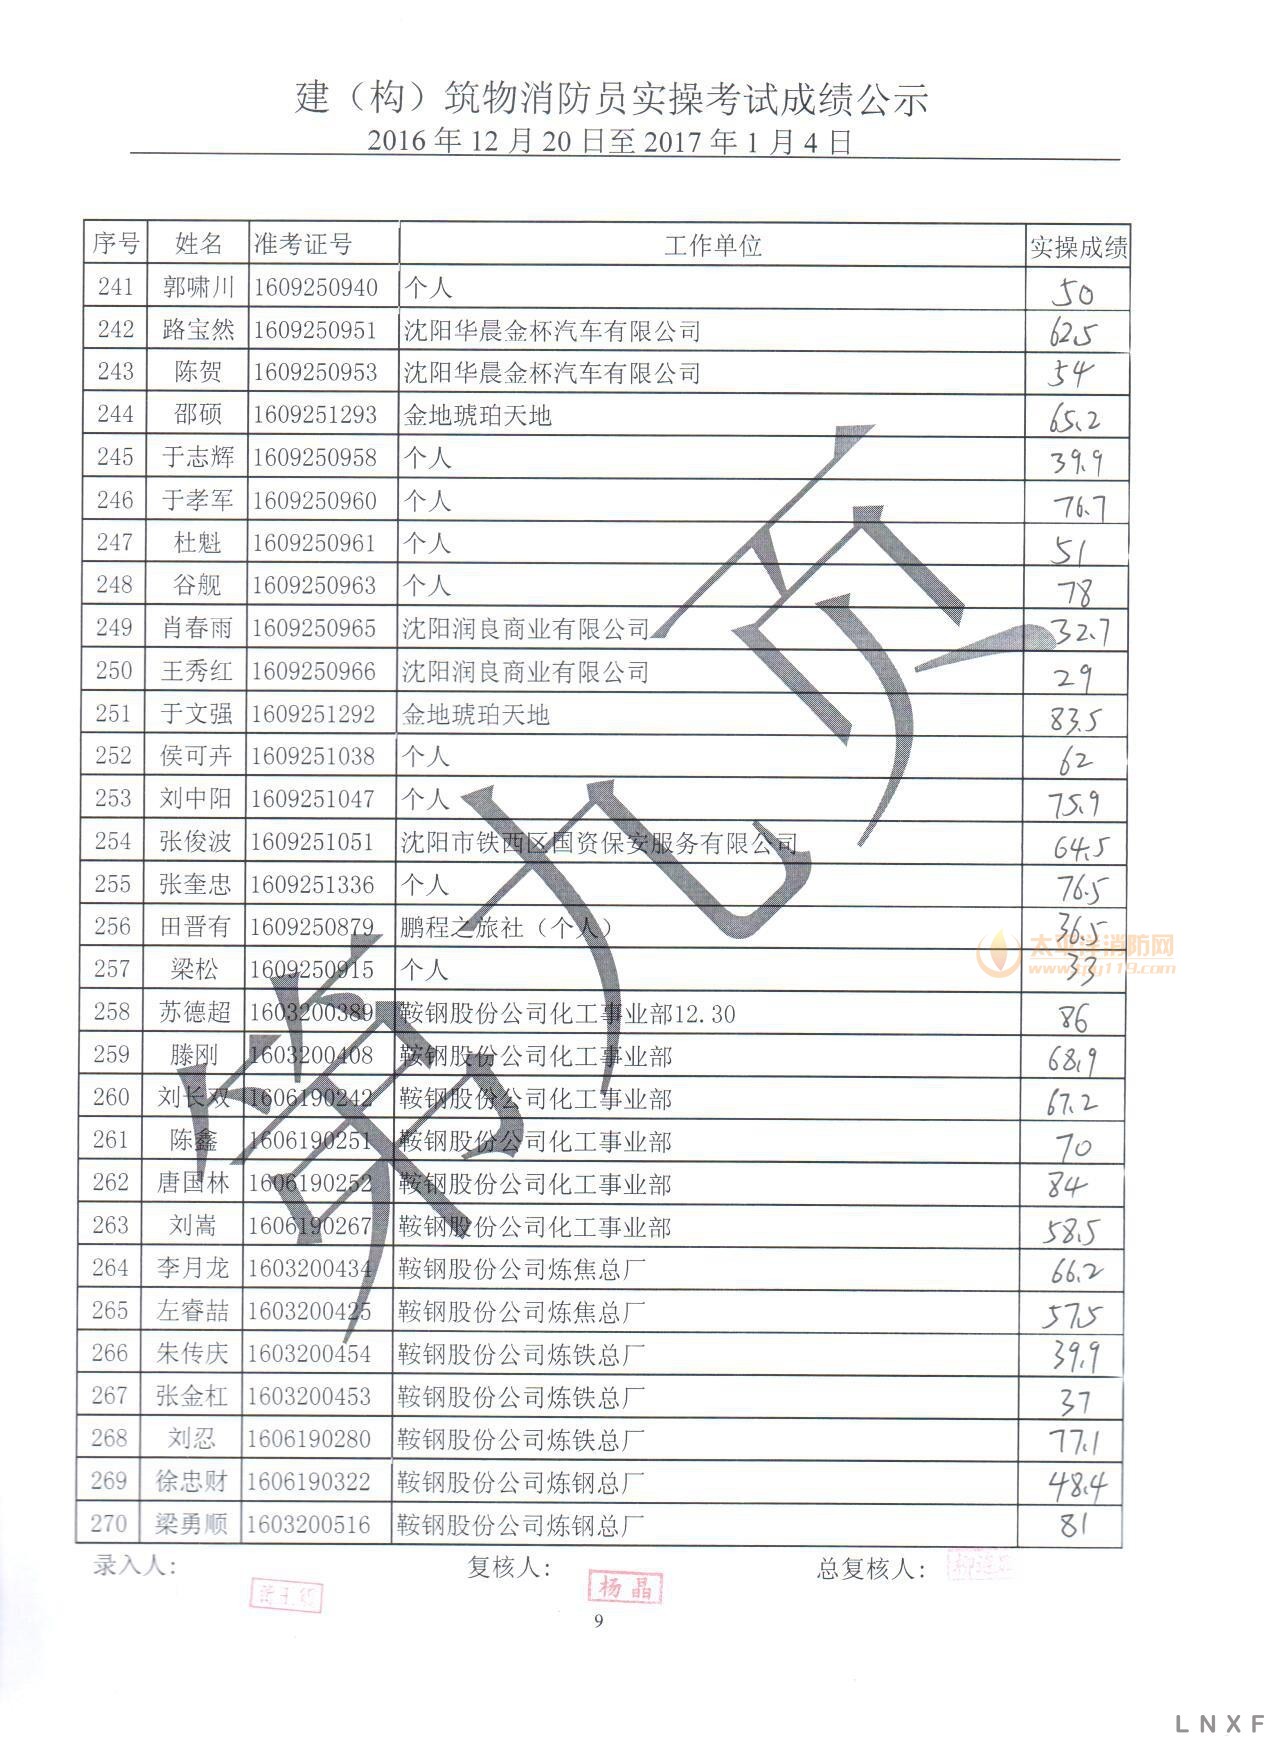 建（构）筑物消防员实操考试成绩公示
2016 年 12 月 20 日至 2017 年 1 月 4 日
序号 姓名 准考证号 工作单位 实操成绩
241 郭啸川 1609250940 个人 50
242 路宝然 1609250951 沈阳华晨金杯汽车有限公司 62.5
243 陈贺 1609250953 沈阳华晨金杯汽车有限公司 54
244 邵硕 1609251293 金地琥珀天地 65.2
245 于志辉 1609250958 个人 39.9
246 于孝军 1609250960 个人 76.7
247 杜魁 1609250961 个人 51
248 谷舰 1609250963 个人 78
249 肖春雨 1609250965 沈阳润良商业有限公司 32.7
250 王秀红 1609250966 沈阳润良商业有限公司 29
251 于文强 1609251292 金地琥珀天地 83.5
252 侯可卉 1609251038 个人 62
253 刘中阳 1609251047 个人 75.9
254 张俊波 1609251051 沈阳市铁西区国资保安服务有限公司 64.5
255 张奎忠 1609251336 个人 76.5
256 田晋有 1609250879 鹏程之旅社（个人） 36.5
257 梁松 1609250915 个人 33
258 苏德超 1603200389 鞍钢股份公司化工事业部12.30 86
259 滕刚 1603200408 鞍钢股份公司化工事业部 68.9
260 刘长双 1606190242 鞍钢股份公司化工事业部 67.2
261 陈鑫 1606190251 鞍钢股份公司化工事业部 70
262 唐国林 1606190252 鞍钢股份公司化工事业部 84
263 刘嵩 1606190267 鞍钢股份公司化工事业部 58.5
264 李月龙 1603200434 鞍钢股份公司炼焦总厂 66.2
265 左睿喆 1603200425 鞍钢股份公司炼焦总厂 57.5
266 朱传庆 1603200454 鞍钢股份公司炼铁总厂 39.9
267 张金杠 1603200453 鞍钢股份公司炼铁总厂 37
268 刘忍 1606190280 鞍钢股份公司炼铁总厂 77.1
269 徐忠财 1606190322 鞍钢股份公司炼钢总厂 48.4
270 梁勇顺 1603200516 鞍钢股份公司炼钢总厂 81
第九页
太平洋消防网
www.tpy119.com
录入人： 复核人： 总复核人：
杨晶
9
LNXF